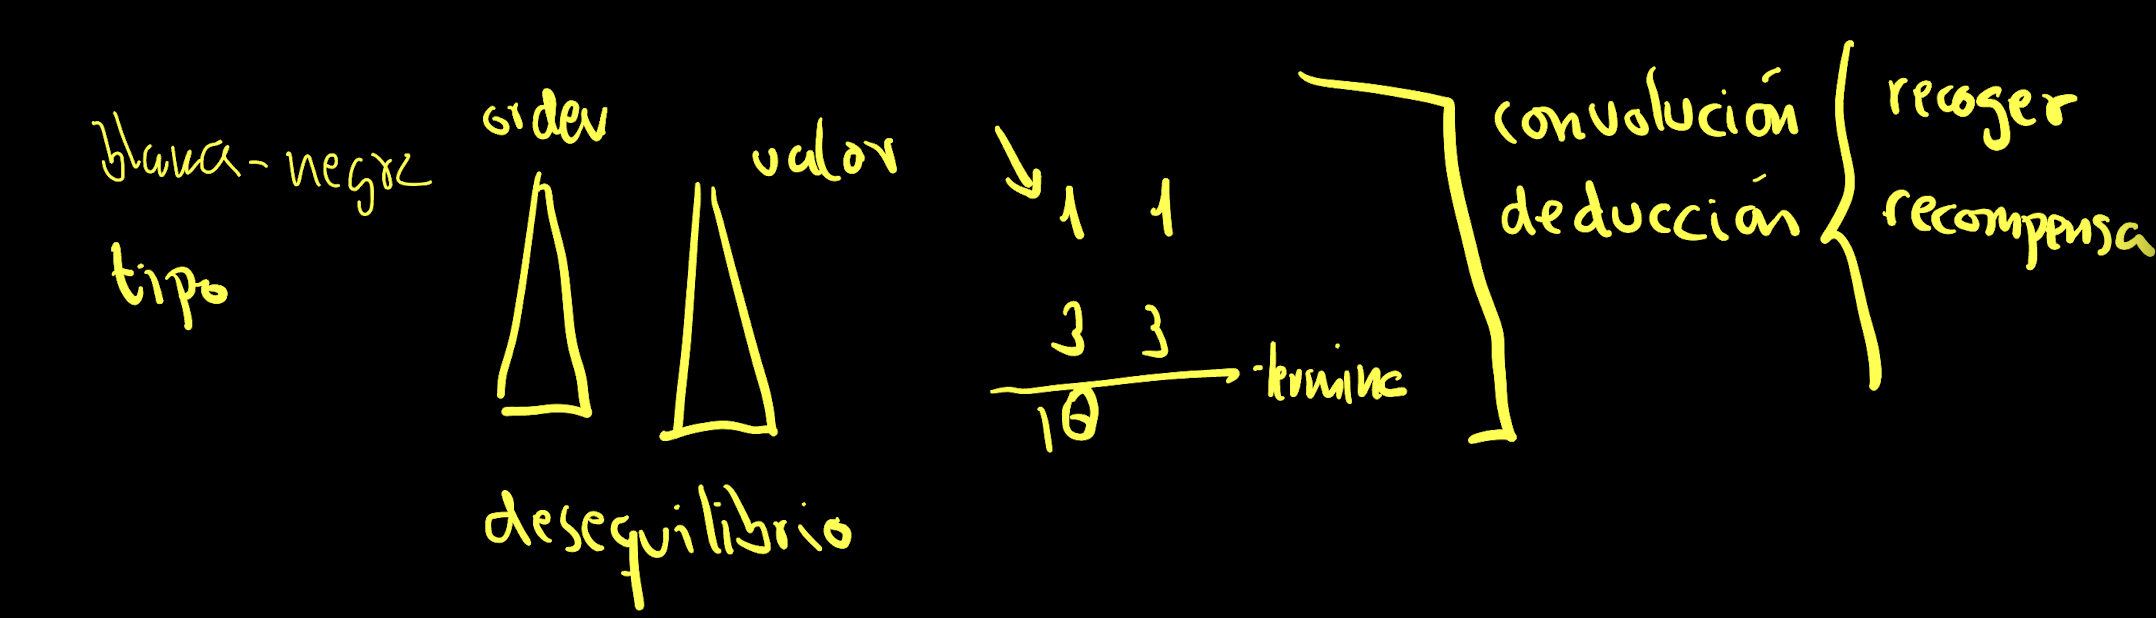 blanca-negra
tipo
orden
valor
desequilibrio
1 1
3 3
10
termina
convolución
deducción
recoger
recompensa